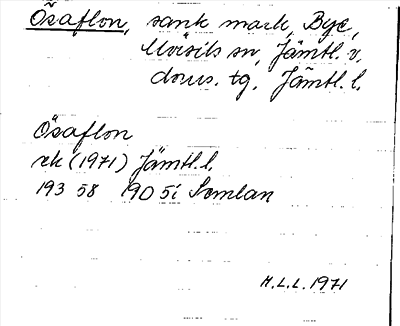 Ösaflon, sank mark, Bye,
Mörsils sn, Jämtl. v.
doms. tg. Jämtl. l.
Ösaflon
rk (1971) Jämtl. l.
193 58 190 5i Semlan
H.L.L. 1971